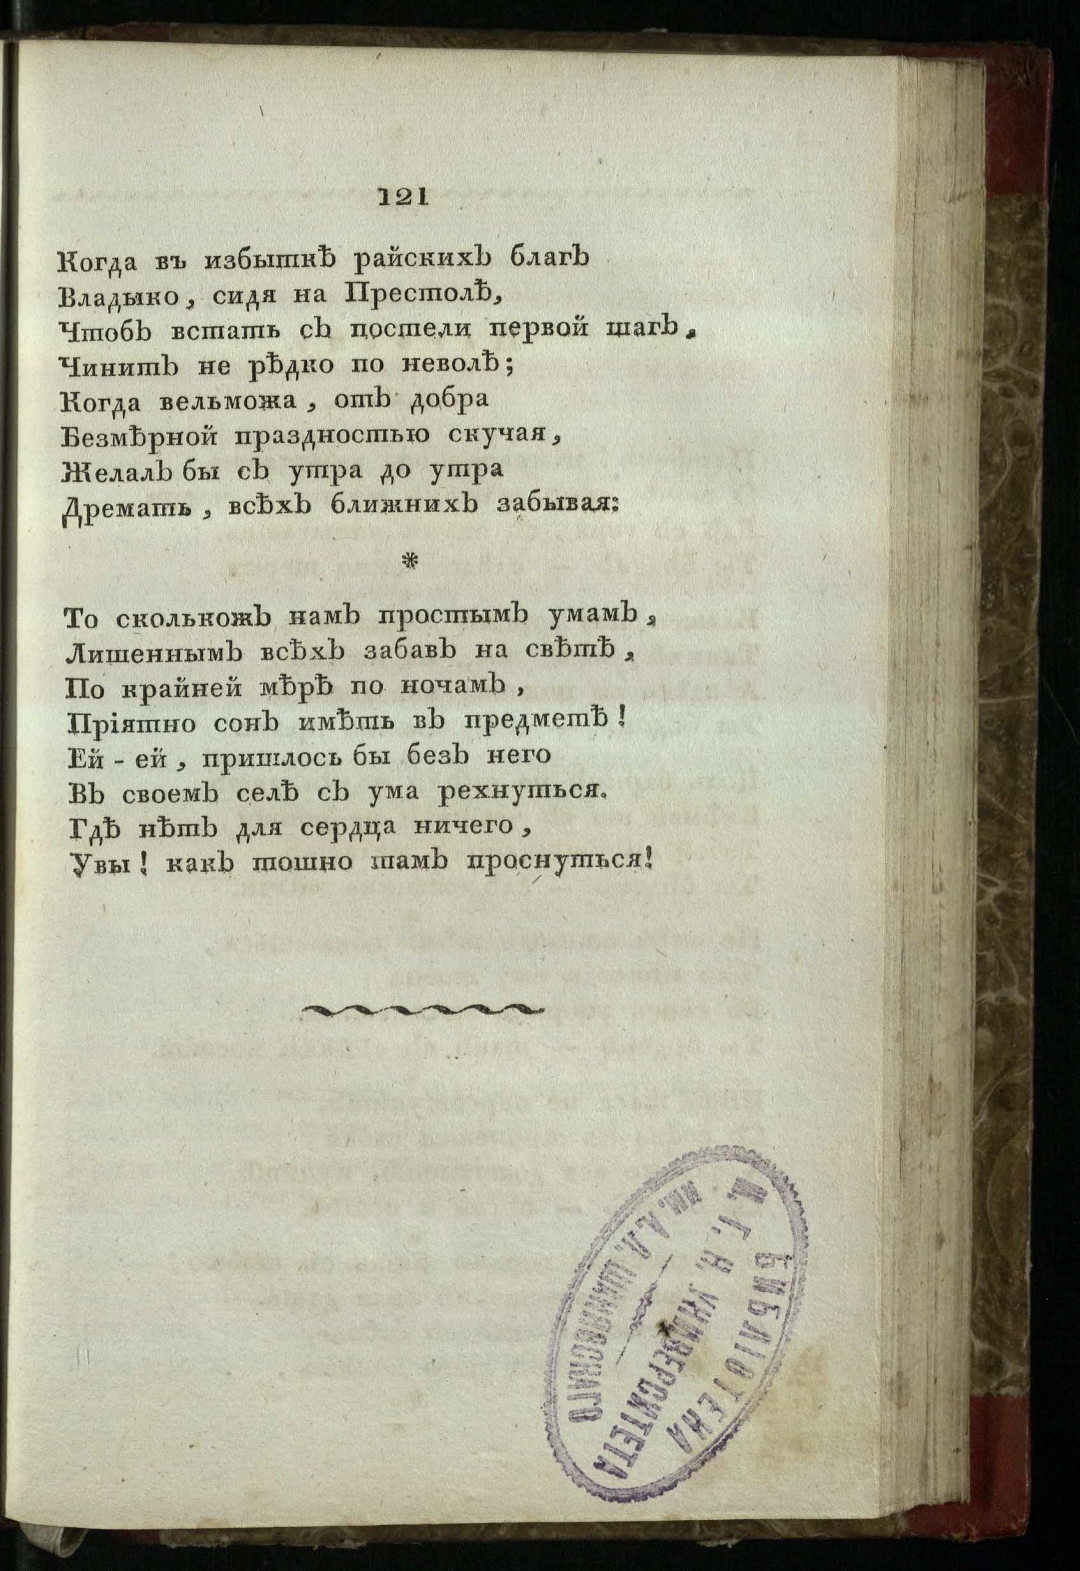 121
Когда въ избыткѣ райскихъ благъ
Владыко, сидя на Престолѣ,
Чтобъ встать съ постели первой шагъ,
Чинитъ не рѣдко по неволѣ;
Когда вельможа, отъ добра
Безмѣрной праздностью скучая,
Желалъ бы съ утра до утра
Дремать, всѣхъ ближнихъ забывая:
*
То сколькожъ намъ простымъ умамъ,
Лишеннымъ всѣхъ забавъ на свѣтѣ,
По крайней мѣрѣ по ночамъ,
Пріятно сонъ имѣть въ предметѣ!
Ей-ей, пришлось бы безъ него
Въ своемъ селѣ съ ума рехнуться.
Гдѣ нѣтъ для сердца ничего,
Увы! какъ тошно тамъ проснуться!
БИБЛІОТЕКА
М. Г. Н. УНИВЕРСИТЕТА
ИМ. А. Л. ШАНЯВСКАГО